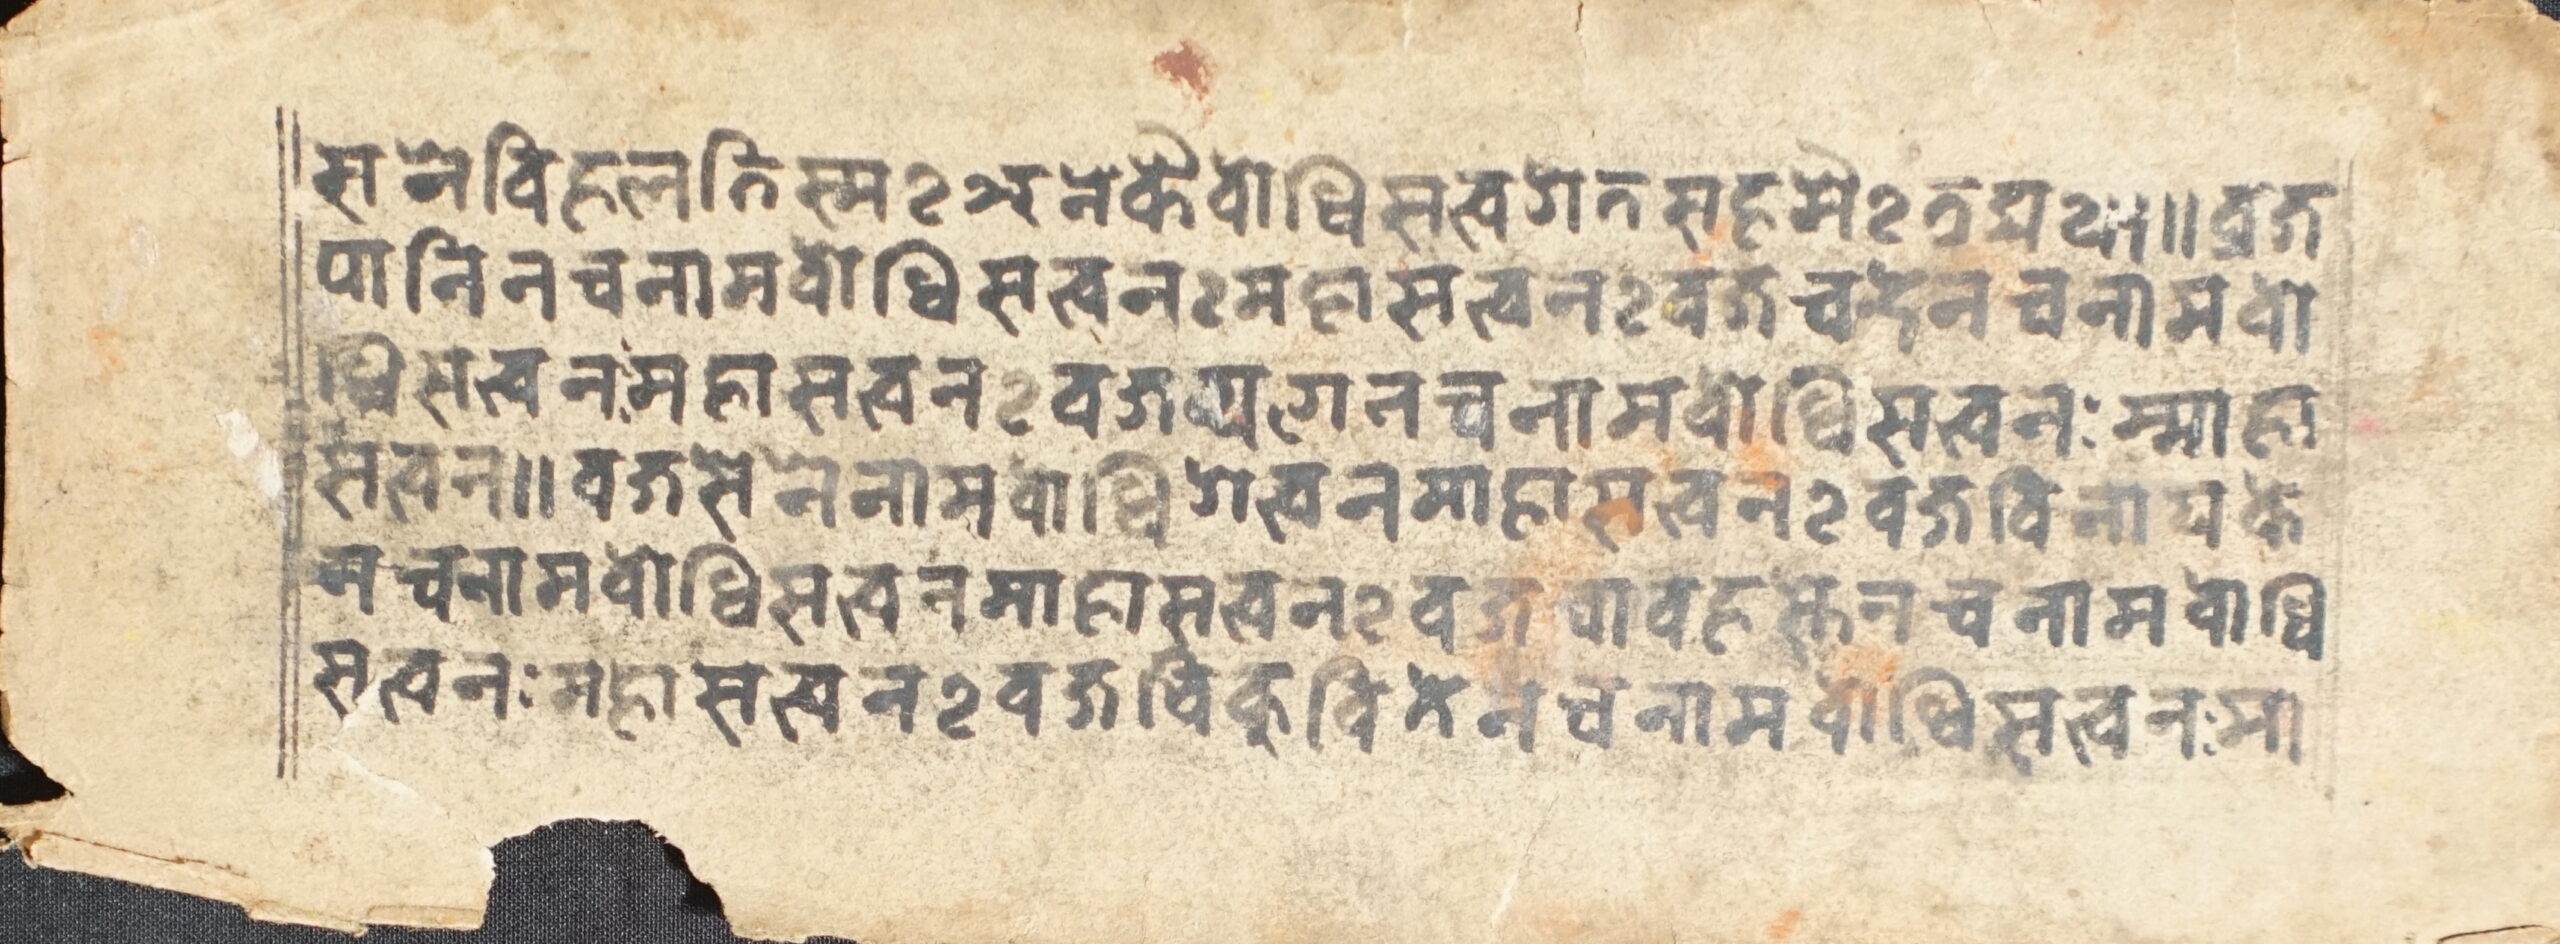 सनेविहलतिस्मःअनेकैबोधिसत्वगनसहस्रैःतद्यथा॥वज्र
पानिनचनामबोधिसत्वनःमहासत्वनःवज्रचन्देनचनामबो
धिसत्वनःमहासत्वनःवज्र नचनामबोधिसत्वनःम्माहा
सत्वन॥वज्रसेनेनामबोधिगत्वनमाहासत्वनःवज्रविनायके
नचनामबोधिसत्वनमाहासत्वनःवज्रचावहस्तेनचनामबोधि
सत्वनःमहासत्वनःवज्रविकुवितेनचनामबोधिसत्वनःमा